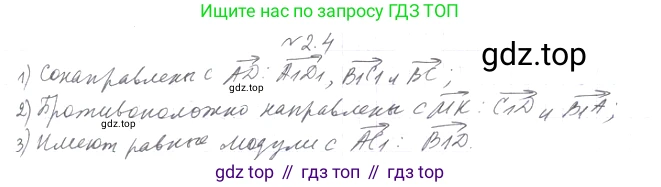 Ищите нас по запросу ГДЗ ТОП
№2.4
gdz.top
1) Сонаправлены с AD: A1D1, B1C1 и BC;
2) Противоположно направлены с MK: C1D и B1A;
3) Имеют равные модули с AC1: B1D.
gdz.top
gdz.top // gdz.top // gdz.top